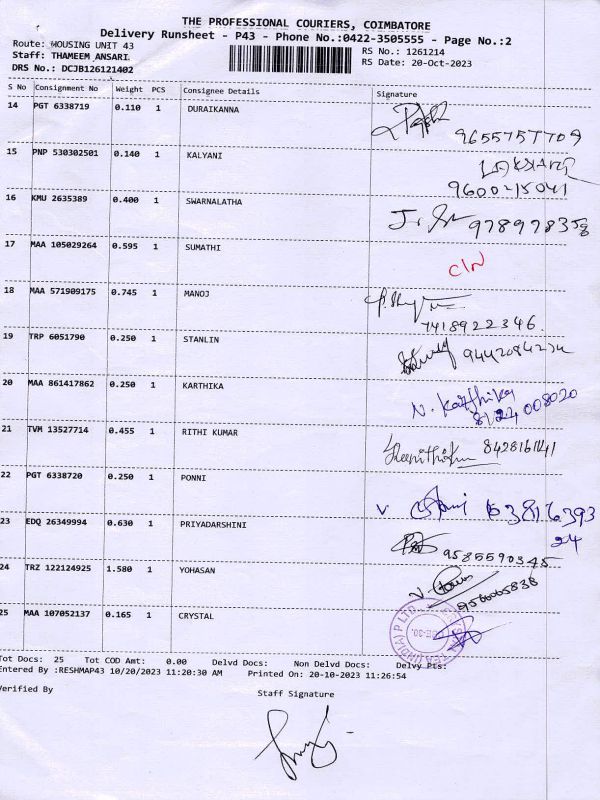 THE PROFESSIONAL COURIERS, COIMBATORE
Delivery Runsheet - P43 - Phone No.:0422-3505555 - Page No.:2
Route: HOUSING UNIT 43
RS No.: 1261214
Staff: THAMEEM ANSARI
RS Date: 20-Oct-2023
DRS No.: DCJB126121402
S No Consignment No Weight PCS Consignee Details Signature
14 PGT 6338719 0.110 1 DURAIKANNA
9655757709
15 PNP 530302501 0.140 1 KALYANI
9600215041
16 KMU 2635389 0.400 1 SWARNALATHA
9789978358
17 MAA 105029264 0.595 1 SUMATHI
C/N
18 MAA 571909175 0.745 1 MANOJ
7418922346
19 TRP 6051790 0.250 1 STANLIN
20 MAA 861417862 0.250 1 KARTHIKA
N. Karthika
8124008020
21 TVM 13527714 0.455 1 RITHI KUMAR
8428161141
22 PGT 6338720 0.250 1 PONNI
V
6381639324
23 EDQ 26349994 0.630 1 PRIYADARSHINI
9585590345
24 TRZ 122124925 1.580 1 YOHASAN
25 MAA 107052137 0.165 1 CRYSTAL
Tot Docs: 25 Tot COD Amt: 0.00 Delvd Docs: Non Delvd Docs: Delvy Pts:
Entered By :RESHMAP43 10/20/2023 11:20:30 AM Printed On: 20-10-2023 11:26:54
Verified By
Staff Signature